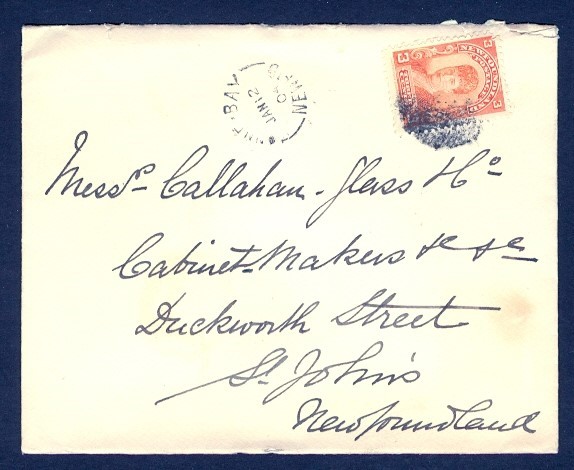 3 NEWFOUNDLAND 3
POSTAGE
BAY
JAN 12
NEWF
Messrs Callahan - Glass & Co
Cabinet-Makers &c &c
Duckworth Street
St. John's
Newfoundland